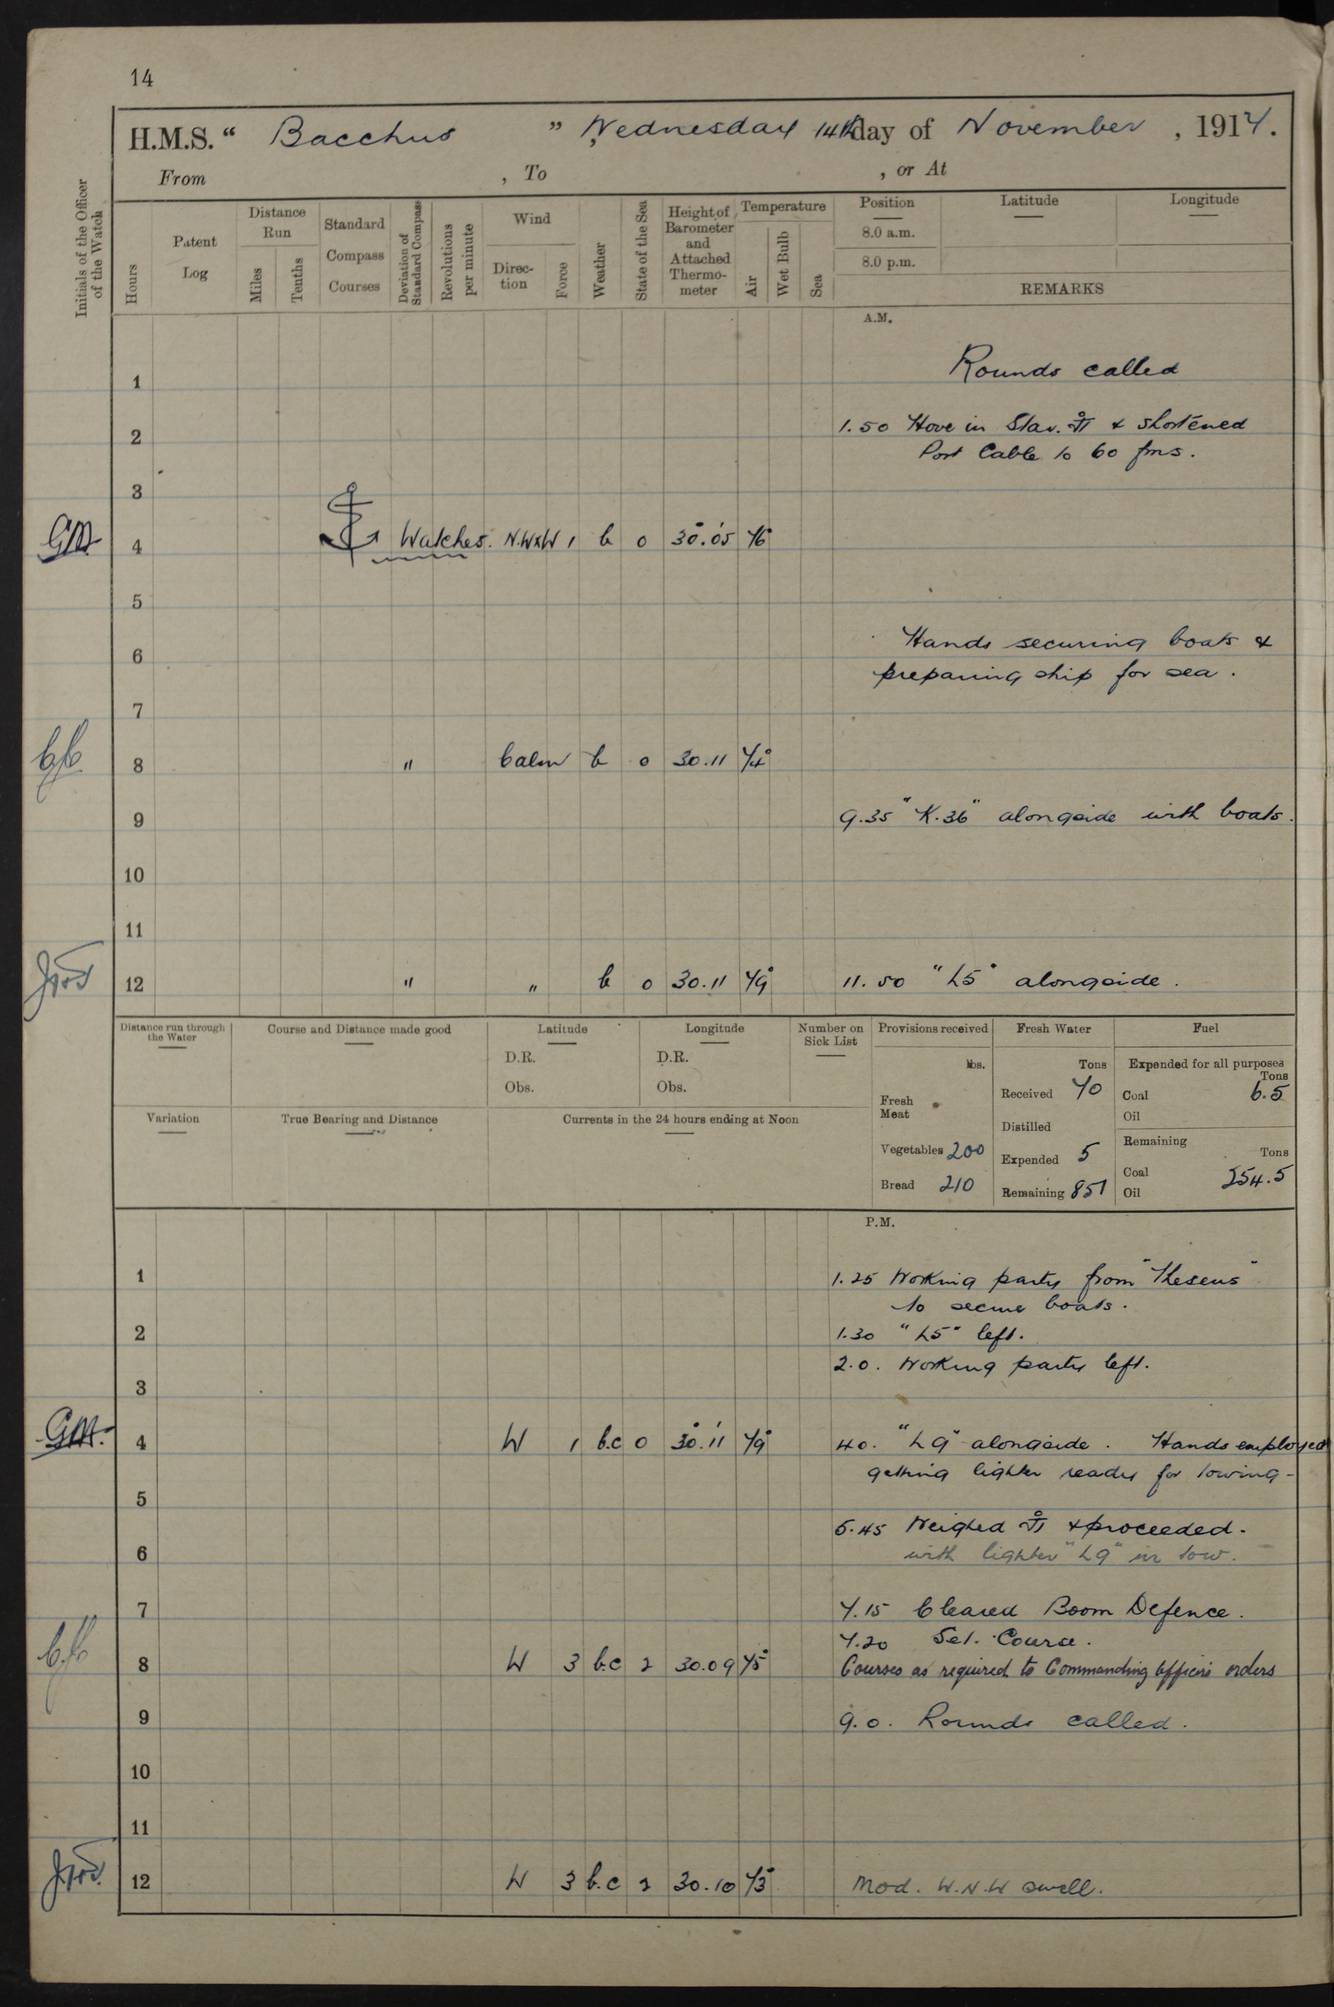 14
H.M.S. “ Bacchus ” , Wednesday 14th day of November , 1917.
From , To , or At
Initials of the Officer of the Watch
Hours
Patent Log
Distance Run
Miles
Tenths
Standard Compass Courses
Deviation of Standard Compass
Revolutions per minute
Wind
Direction
Force
Weather
State of the Sea
Height of Barometer and Attached Thermometer
Temperature
Air
Wet Bulb
Sea
Position
8.0 a.m.
8.0 p.m.
Latitude
Longitude
REMARKS
A.M.
1 Rounds called
2 1.50 Hove in Star. & shortened
Port Cable to 60 fms.
3
GM 4 Watches. N.W×W 1 b 0 30.05 76°
5
6 Hands securing boats &
preparing ship for sea.
7
8 " Calm b 0 30.11 74°
9 9.35 "K.36" alongside with boats.
10
11
12 " " b 0 30.11 79° 11.50 "L5" alongside.
Distance run through the Water
Course and Distance made good
Latitude
D.R.
Obs.
Longitude
D.R.
Obs.
Number on Sick List
Provisions received
lbs.
Fresh Meat
Vegetables 200
Bread 210
Fresh Water
Tons
Received 70
Distilled
Expended 5
Remaining 851
Fuel
Expended for all purposes
Tons
Coal 6.5
Oil
Remaining
Tons
Coal 254.5
Oil
Variation
True Bearing and Distance
Currents in the 24 hours ending at Noon
P.M.
1 1.25 Working party from "Theseus"
to secure boats.
2 1.30 "L5" left.
2.0. Working party left.
3
GM. 4 W 1 b.c 0 30.11 79° 4.0. "L9" alongside. Hands employed
getting lighter ready for towing-
5
5.45 Weighed & proceeded.
6 with lighter "L9" in tow.
7 7.15 Cleared Boom Defence.
7.20 Set. Course.
8 W 3 b.c 2 30.09 75° Courses as required to Commanding Officers orders
9 9.0. Rounds called.
10
11
12 W 3 b.c 2 30.10 73° Mod. W.N.W swell.